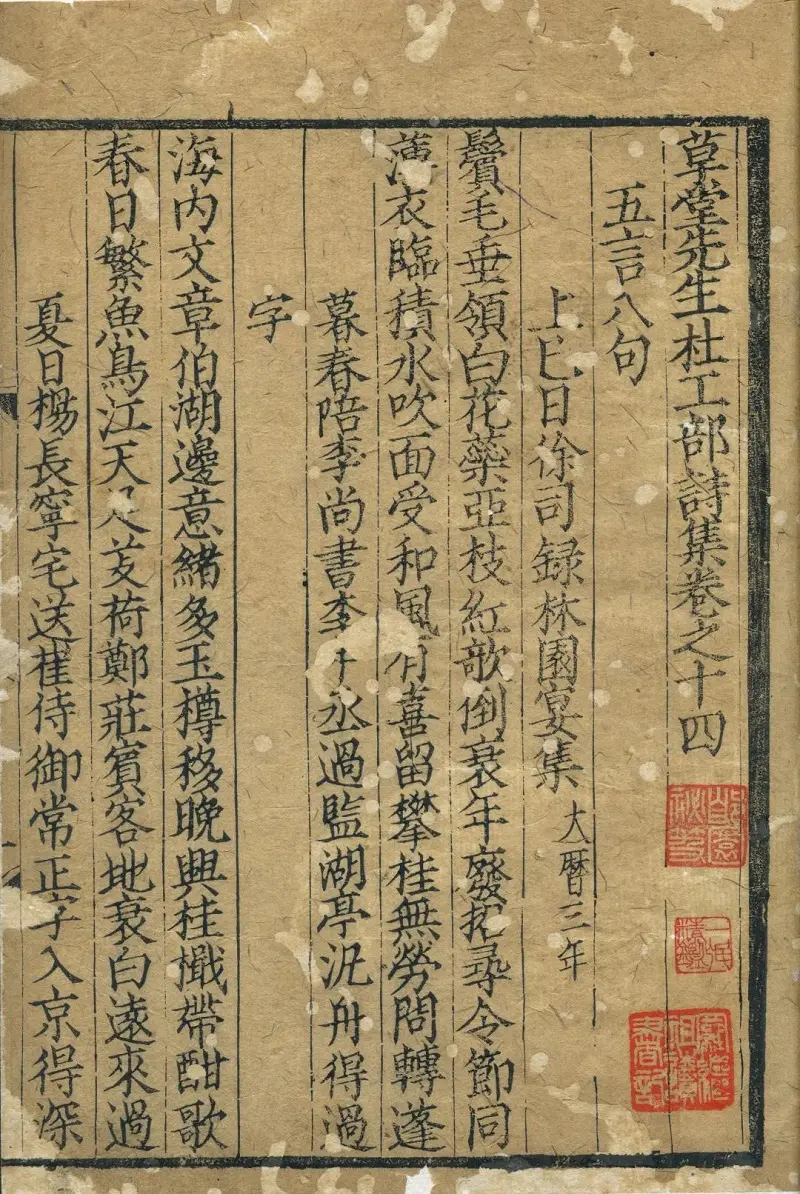 草堂先生杜工部詩集卷之十四
五言八句
上巳日徐司録林園宴集 大曆三年
鬢毛垂領白花蘂亞枝紅歌倒衰年廢招尋令節同
薄衣臨積水吹面受和風有喜留攀桂無勞問轉蓬
暮春陪李尚書李 丞過監湖亭汎舟得過
字
海内文章伯湖邊意緒多玉樽移晚興桂檝帶酣歌
春日繁魚鳥江天足芰荷鄭莊賓客地衰白遠來過
夏日楊長寧宅送崔侍御常正字入京得深